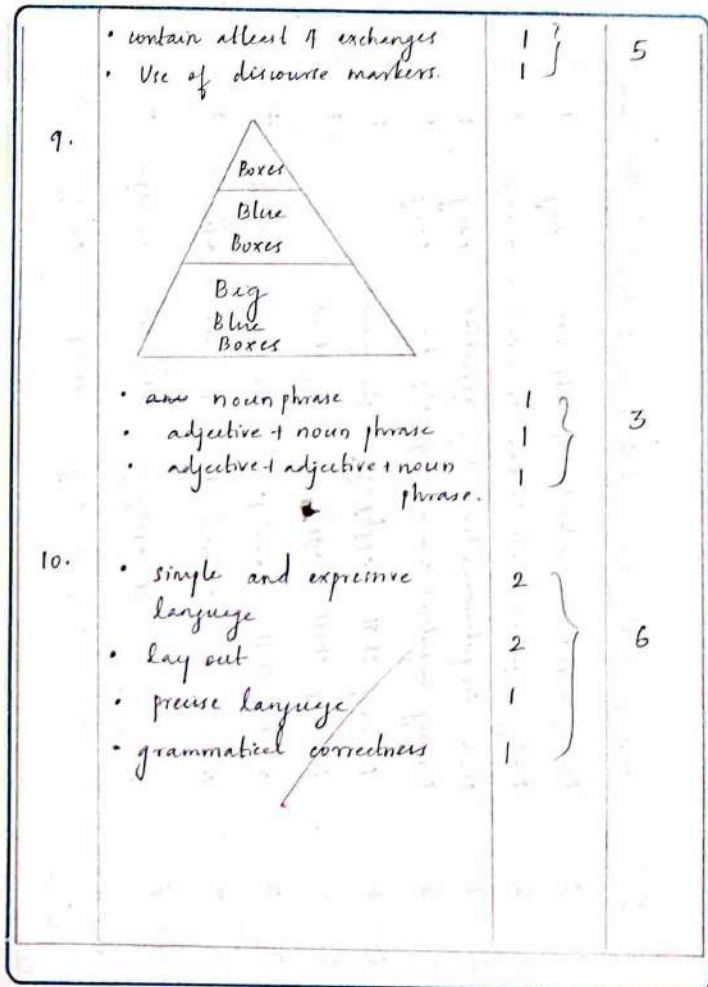 • contain atleast 4 exchanges 1
• Use of discourse markers. 1 } 5
9.
Boxes
Blue
Boxes
Big
Blue
Boxes
• noun phrase 1
• adjective + noun phrase 1 } 3
• adjective + adjective + noun 1
phrase.
10. • simple and expressive 2
language
• lay out 2 } 6
• precise language 1
• grammatical correctness 1